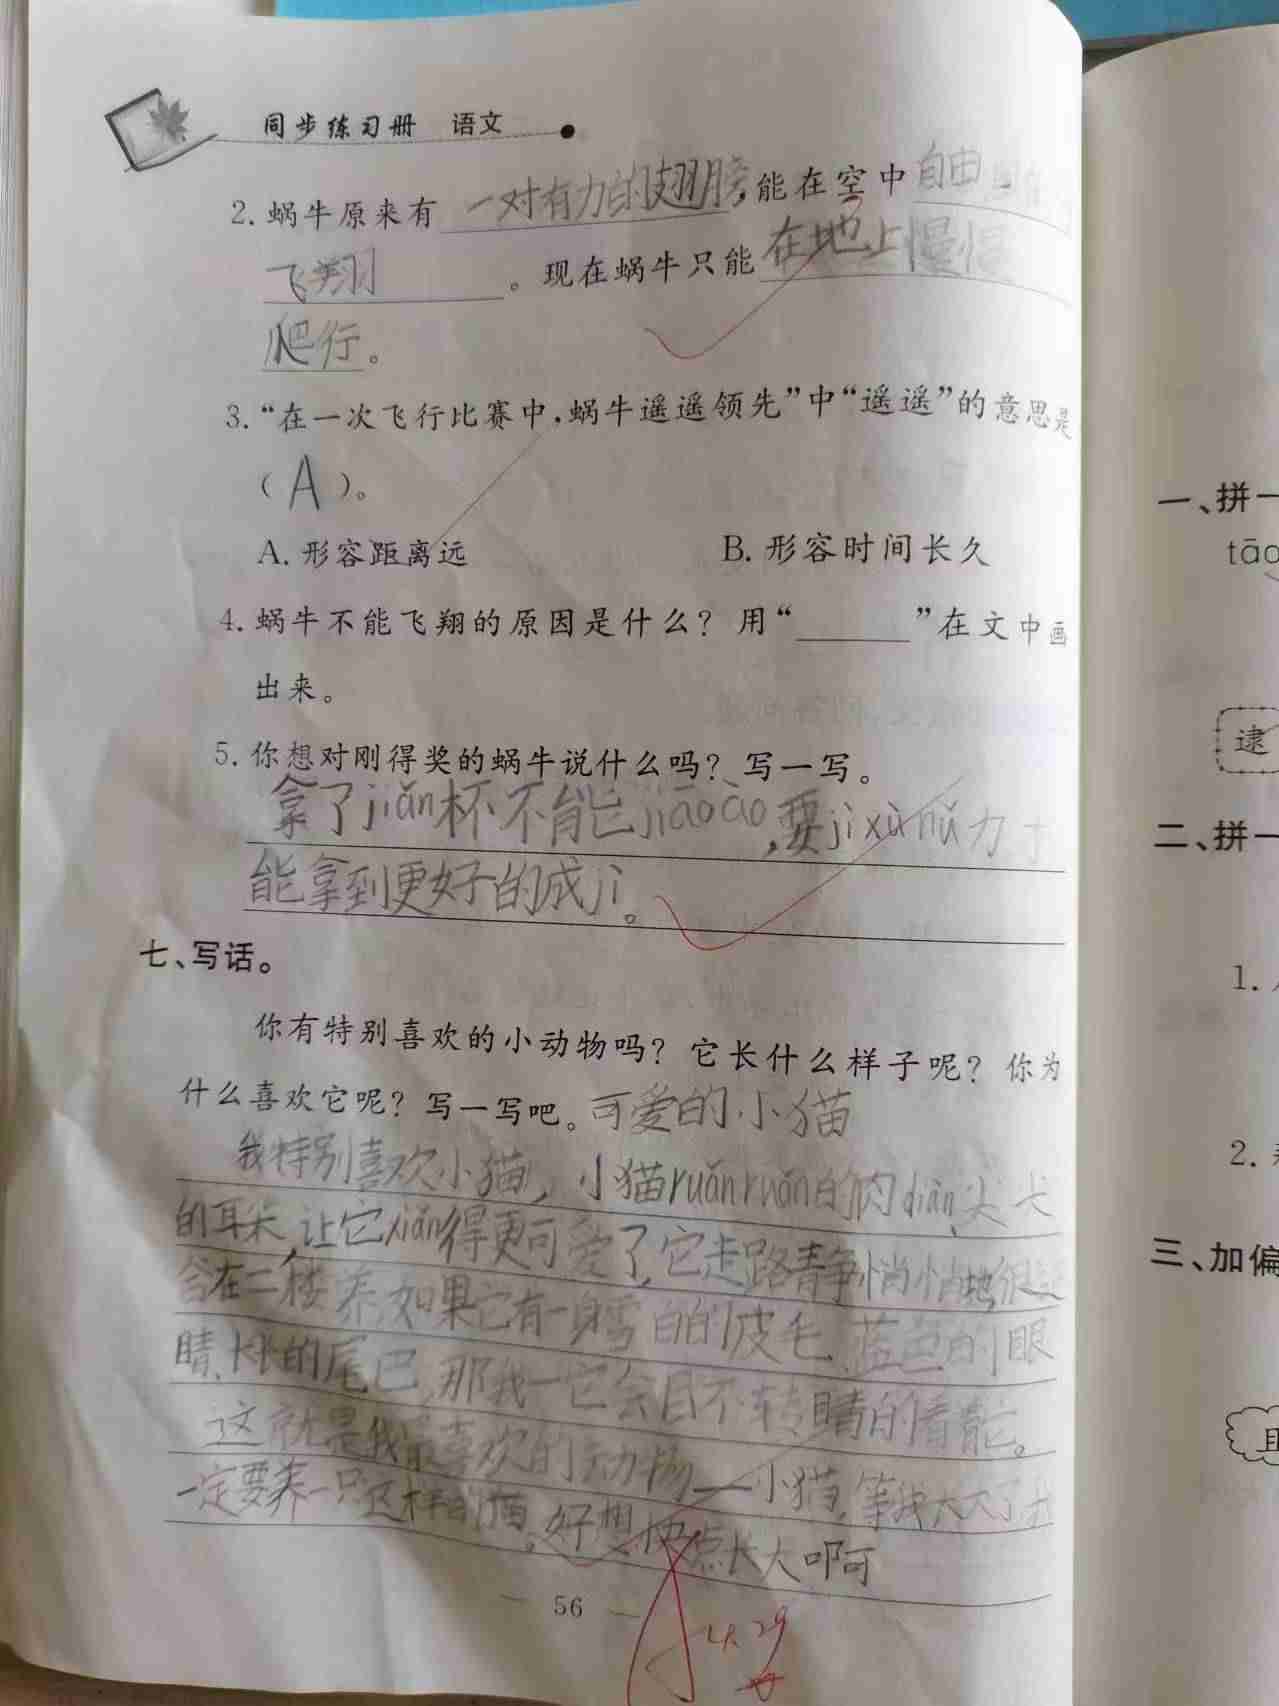 同步练习册 语文
2. 蜗牛原来有一对有力的翅膀,能在空中自由
飞翔。现在蜗牛只能在地上慢慢
爬行。
3. “在一次飞行比赛中,蜗牛遥遥领先”中“遥遥”的意思是
(A)。
A. 形容距离远 B. 形容时间长久
4. 蜗牛不能飞翔的原因是什么? 用“______”在文中画
出来。
5. 你想对刚得奖的蜗牛说什么吗? 写一写。
拿了jiǎn杯不能jiāoào,要jìxùnǔ力才
能拿到更好的成jì。
七、写话。
你有特别喜欢的小动物吗? 它长什么样子呢? 你为
什么喜欢它呢? 写一写吧。可爱的小猫
我特别喜欢小猫,小猫ruǎnruǎn的肉diàn、尖尖
的耳朵,让它xiǎn得更可爱了,它走路静悄悄地,很适
合在二楼养,如果它有一身雪白的皮毛、蓝色的眼
睛、长长的尾巴,那我一定会目不转睛的看着它。
这就是我最喜欢的动物——小猫,等我长大了我
一定要养一只这样的猫。好想快点长大啊
56
4.29
一、拼一
tāo
逮
二、拼一
1.
2.
三、加偏